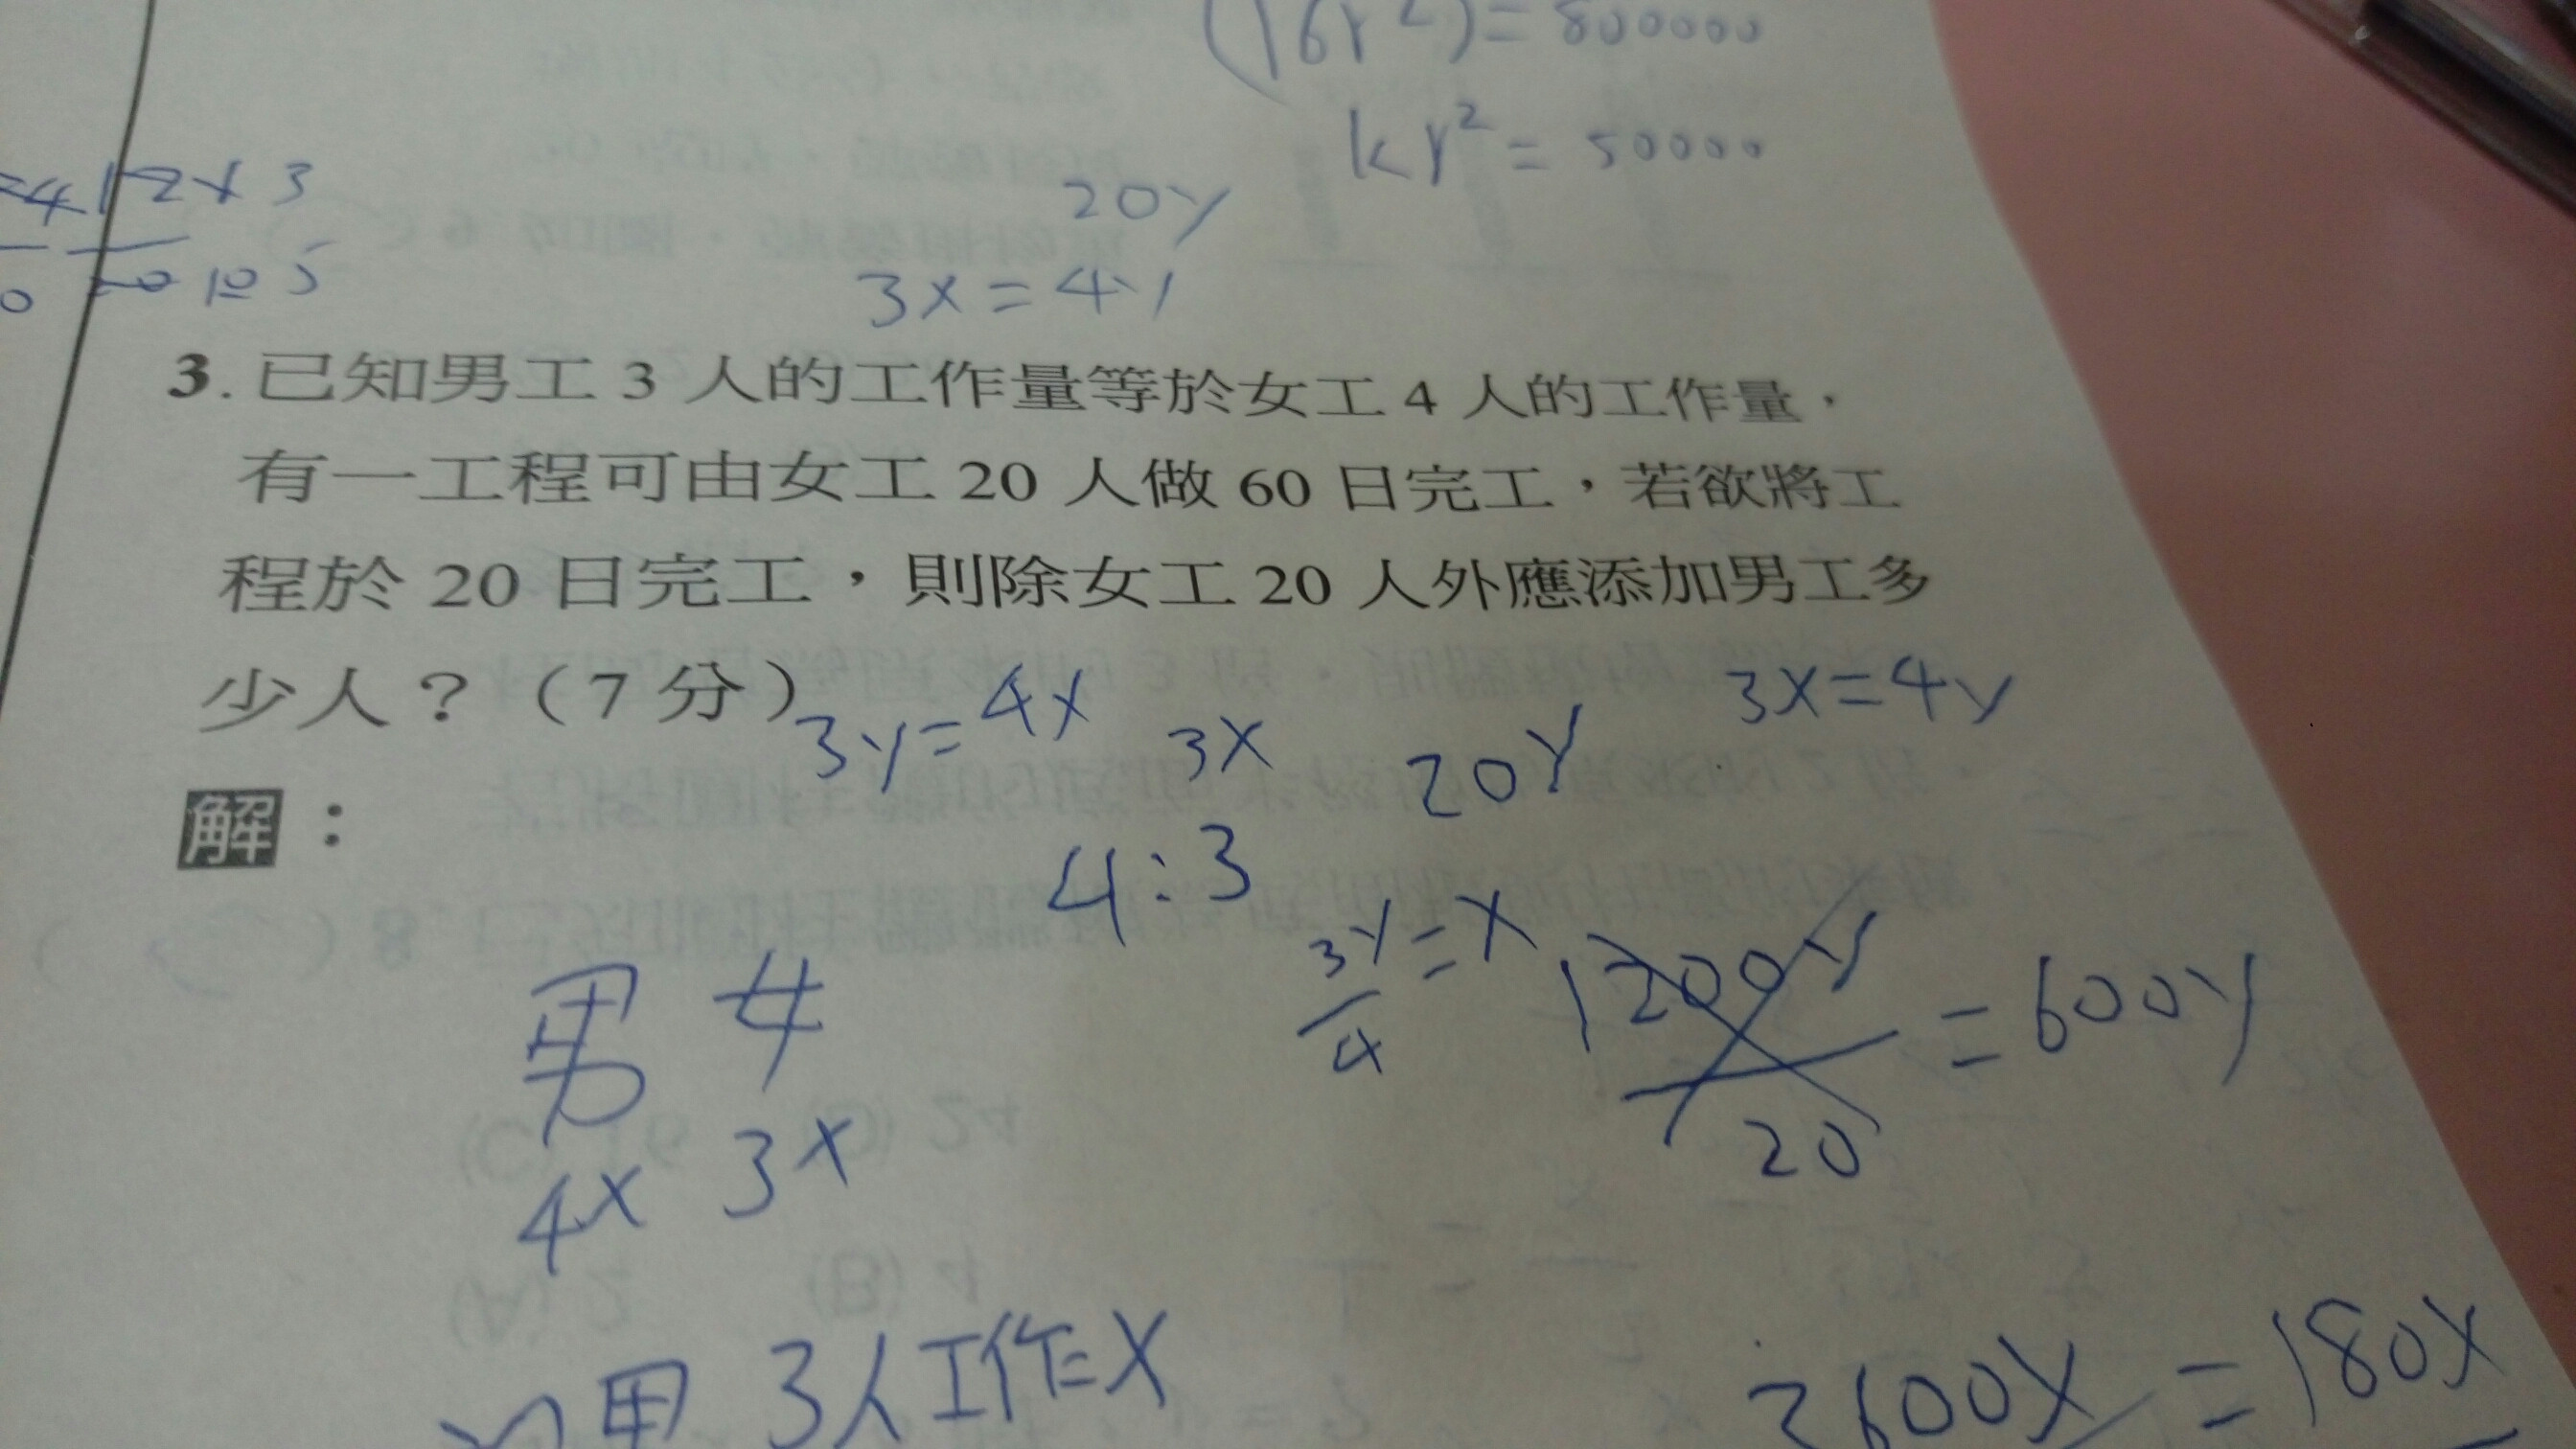 (16r²)=800000
kr²=50000
20y
3x=4y
3. 已知男工 3 人的工作量等於女工 4 人的工作量，
有一工程可由女工 20 人做 60 日完工，若欲將工
程於 20 日完工，則除女工 20 人外應添加男工多
少人？（7 分）
3y=4x 3x 20y 3x=4y
解：
4:3
男 女
3y/4=x
1200y/20=600y
4x 3x
男 3人工作=x
3600x=180x